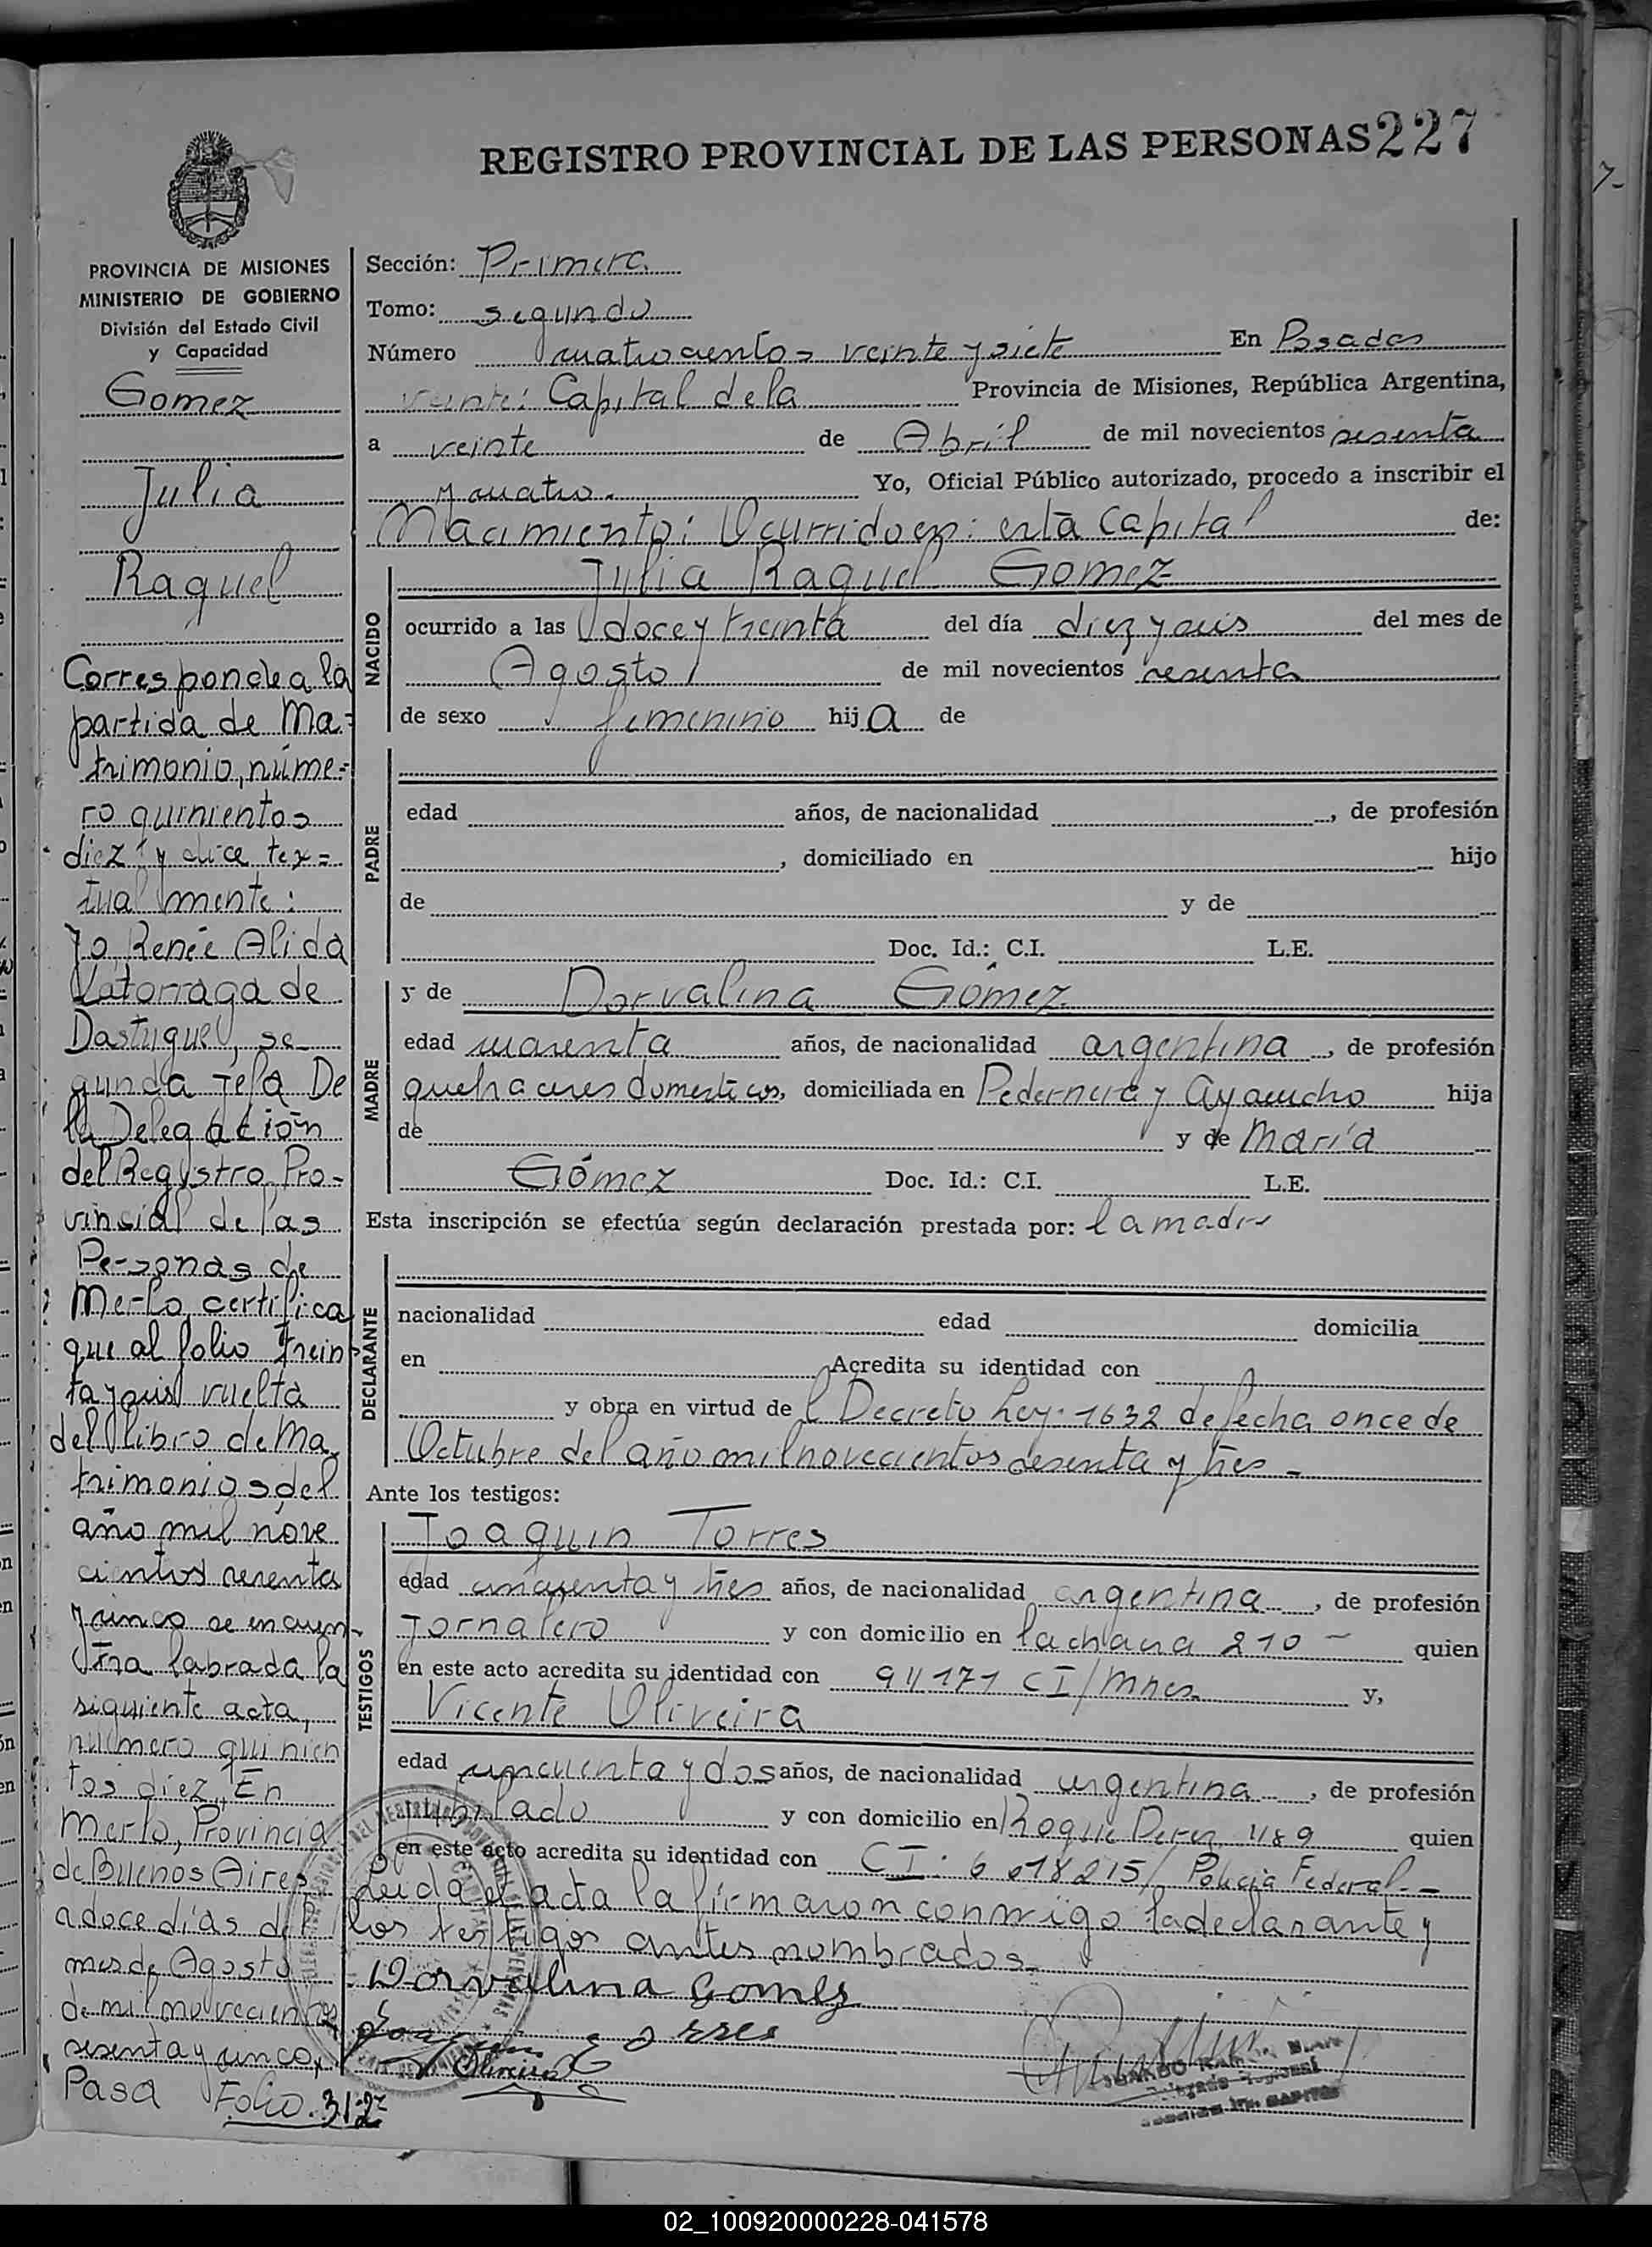 REGISTRO PROVINCIAL DE LAS PERSONAS 227
PROVINCIA DE MISIONES
MINISTERIO DE GOBIERNO
División del Estado Civil
y Capacidad
Gomez
Julia
Raquel
Corresponde a la
partida de Ma=
trimonio, núme=
ro quinientos
diez y dice tex=
tual mente:
Yo Renée Alida
Latorraga de
Dastugue, se
gunda Jefa De
la Delegación
del Registro Pro-
vincial de las
Personas de
Merlo, certifica
que al folio trein
ta y seis vuelta
del libro de Ma
trimonios del
año mil nove
cientos sesenta
y cinco se encuen-
tra labrada la
siguiente acta,
número quinien
tos diez, En
Merlo, Provincia
de Buenos Aires
a doce días del
mes de Agosto
de mil novecientos
sesenta y cinco,
Pasa Folio. 312
Sección: Primera
Tomo: segundo
Número cuatrocientos veinte y siete En Posadas
Capital de la Provincia de Misiones, República Argentina,
a veinte de Abríl de mil novecientos sesenta
y cuatro. Yo, Oficial Público autorizado, procedo a inscribir el
Nacimiento: Ocurrido en: esta Capital de:
NACIDO
Julia Raquel Gomez
ocurrido a las doce y treinta del día diez y seis del mes de
Agosto de mil novecientos sesenta
de sexo femenino hija de
PADRE
edad años, de nacionalidad , de profesión
, domiciliado en hijo
de y de
Doc. Id.: C.I. L.E.
MADRE
y de Dorvalina Gómez
edad cuarenta años, de nacionalidad argentina, de profesión
quehaceres domesticos, domiciliada en Pedernera y Ayacucho hija
de y de María
Gómez Doc. Id.: C.I. L.E.
Esta inscripción se efectúa según declaración prestada por: la madre
DECLARANTE
nacionalidad edad domicilia
en Acredita su identidad con
y obra en virtud del Decreto Ley: 1632 de fecha once de
Octubre del año mil novecientos sesenta y tres -
Ante los testigos:
TESTIGOS
Joaquin Torres
edad cuarenta y tres años, de nacionalidad argentina, de profesión
Jornalero y con domicilio en la chacra 210 - quien
en este acto acredita su identidad con CI/Mnes. y,
Vicente Oliveira
edad cincuenta y dos años, de nacionalidad argentina, de profesión
Jubilado y con domicilio en Roque Perez 489 quien
en este acto acredita su identidad con CI: 6.018215/ Policia Federal.-
Leida el acta la firmaron conmigo la declarante y
los testigos antes nombrados.
Dorvalina Gomez
Joaquin Torres
Oliveira
02_100920000228-041578